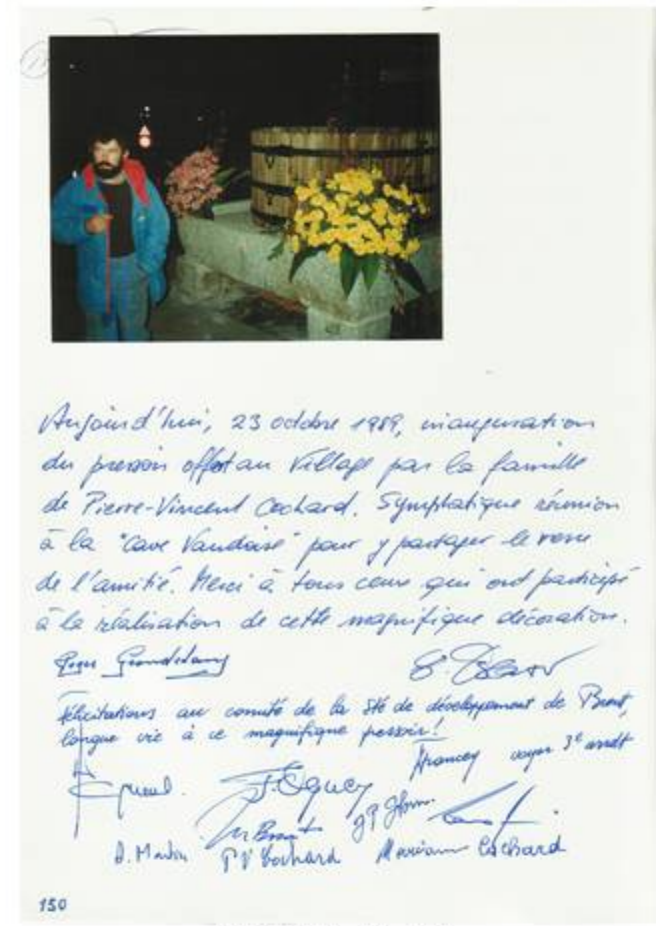 Aujourd'hui, 23 octobre 1989, inauguration
du pressoir offert au Village par la famille
de Pierre-Vincent Cochard. Symphatique réunion
à la "Cave Vaudoise" pour y partager le verre
de l'amitié. Merci à tous ceux qui ont participé
à la réalisation de cette magnifique décoration.
Félicitations au comité de la Sté de développement de Brent,
longue vie à ce magnifique pressoir!
voyer 3e arrdt
A. Martin PV Cochard Mariann Cochard
150